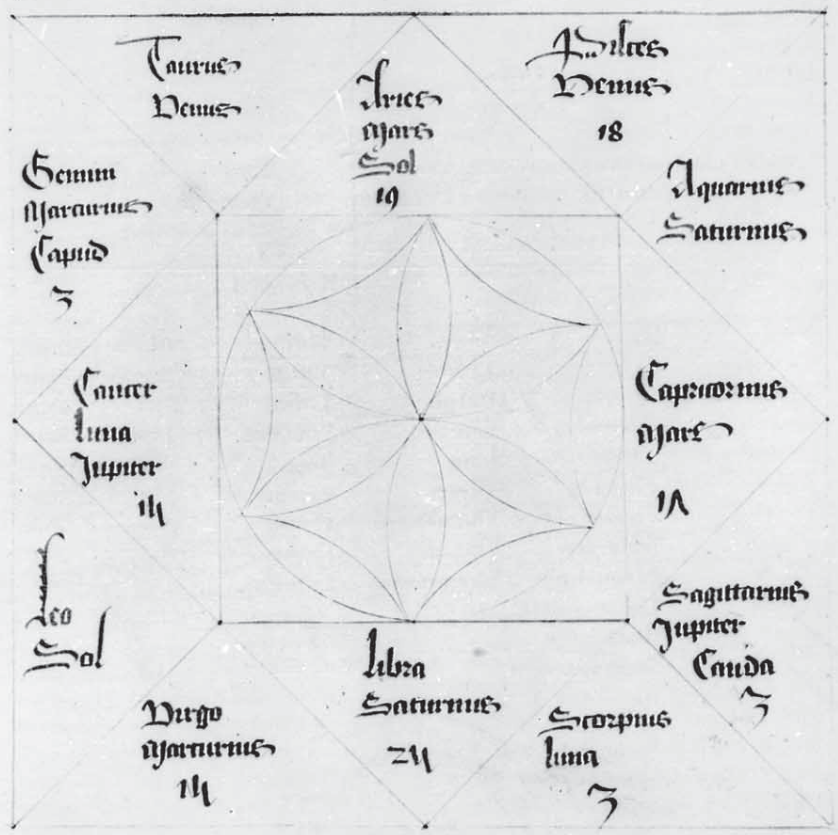 Taurus
Venus
Aries
Mars
Sol
19
Pisces
Venus
18
Gemini
Marcurius
Capud
3
Aquarius
Saturnus
Cancer
Luna
Jupiter
15
Capricornius
Mars
17
Leo
Sol
Sagittarius
Jupiter
Cauda
3
Virgo
Marcurius
15
Libra
Saturnus
25
Scorpius
Luna
3